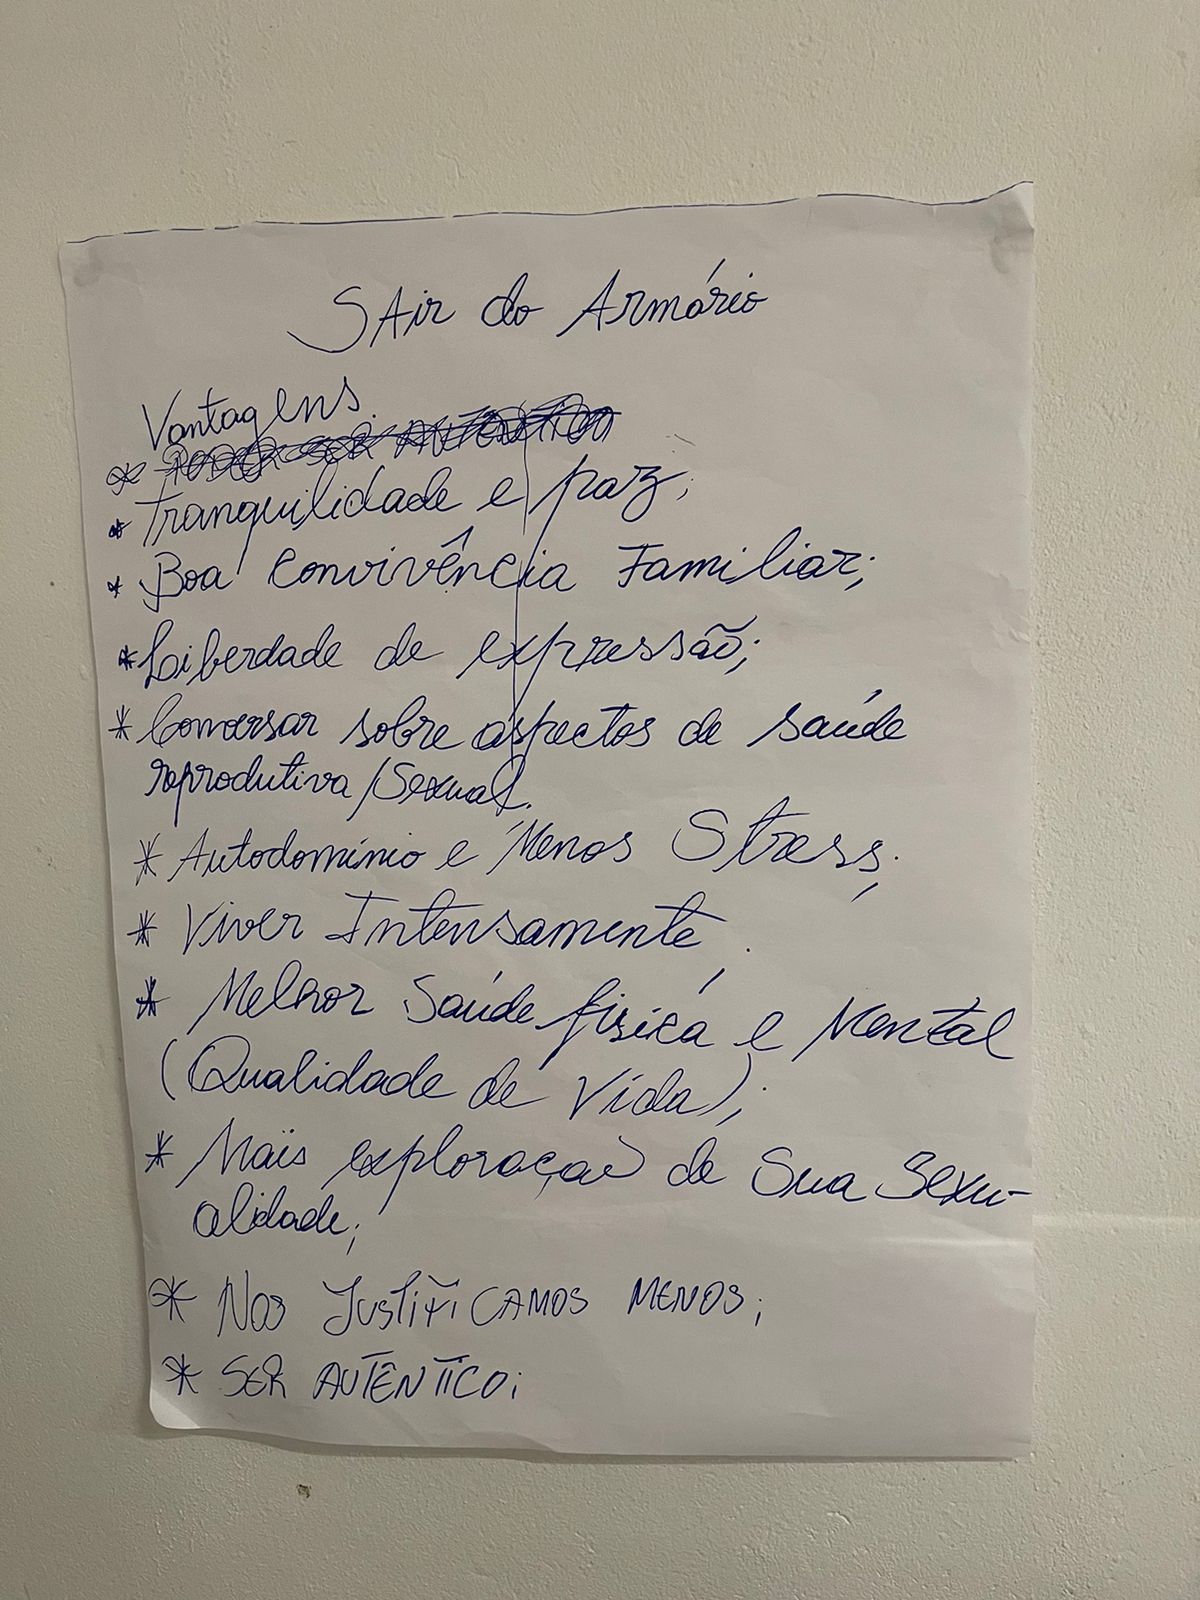 SAir do Armário
Vantagens.
* Tranquilidade e paz;
* Boa Convivência Familiar;
* Liberdade de expressão;
* Conversar sobre aspectos de saúde
reprodutiva/Sexual.
* Autodomínio e Menos Stress;
* Viver Intensamente.
* Melhor Saúde física e Mental
(Qualidade de Vida);
* Mais exploração de Sua Sexu-
alidade;
* Nos JustiFiCAMOS MENOS;
* SER AUTÊNTICO;